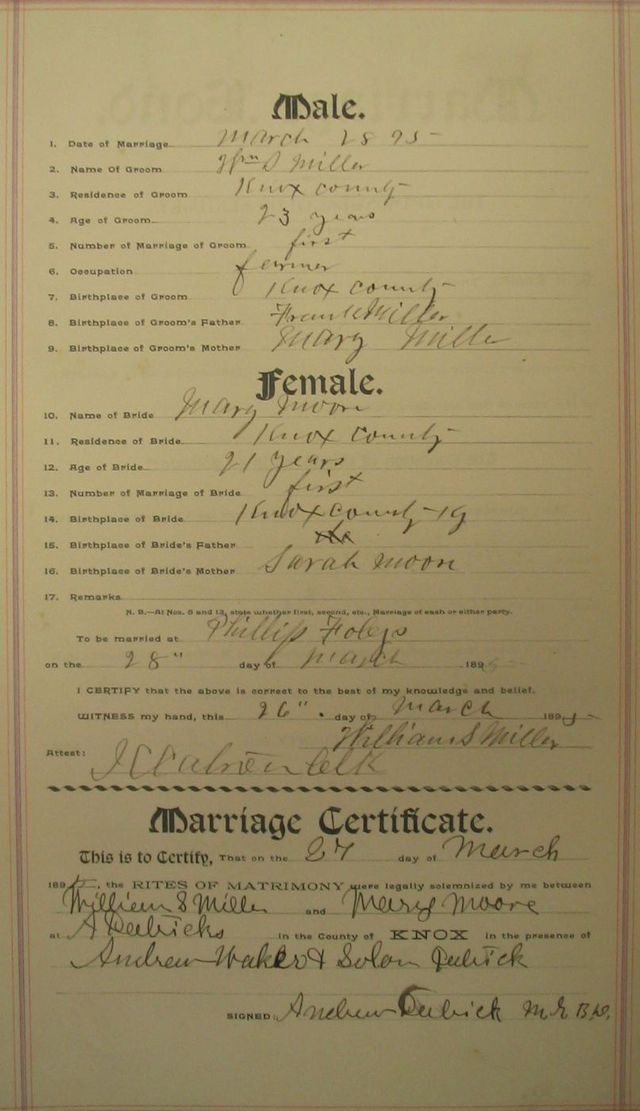 Male.
1. Date of Marriage March 28 95
2. Name Of Groom Wm S Miller
3. Residence of Groom Knox county
4. Age of Groom 23 years
5. Number of Marriage of Groom first
6. Occupation farmer
7. Birthplace of Groom Knox county
8. Birthplace of Groom's Father Frank Miller
9. Birthplace of Groom's Mother Mary Miller
Female.
10. Name of Bride Mary Moore
11. Residence of Bride Knox county
12. Age of Bride 21 years
13. Number of Marriage of Bride first
14. Birthplace of Bride Knox county Ky
15. Birthplace of Bride's Father
16. Birthplace of Bride's Mother Sarah Moore
17. Remarks
N. B.—At Nos. 5 and 13, state whether first, second, etc., Marriage of each or either party.
To be married at Phillip Foleys
on the 28" day of March 1895
I CERTIFY that the above is correct to the best of my knowledge and belief.
WITNESS my hand, this 26" . day of March 1895
William S Miller
Attest: Clk
Marriage Certificate.
This is to Certify, That on the 27 day of March
1895, the RITES OF MATRIMONY were legally solemnized by me between
William S Miller and Mary Moore
at A in the County of KNOX in the presence of
Andrew Walker & Solon
SIGNED: Andrew